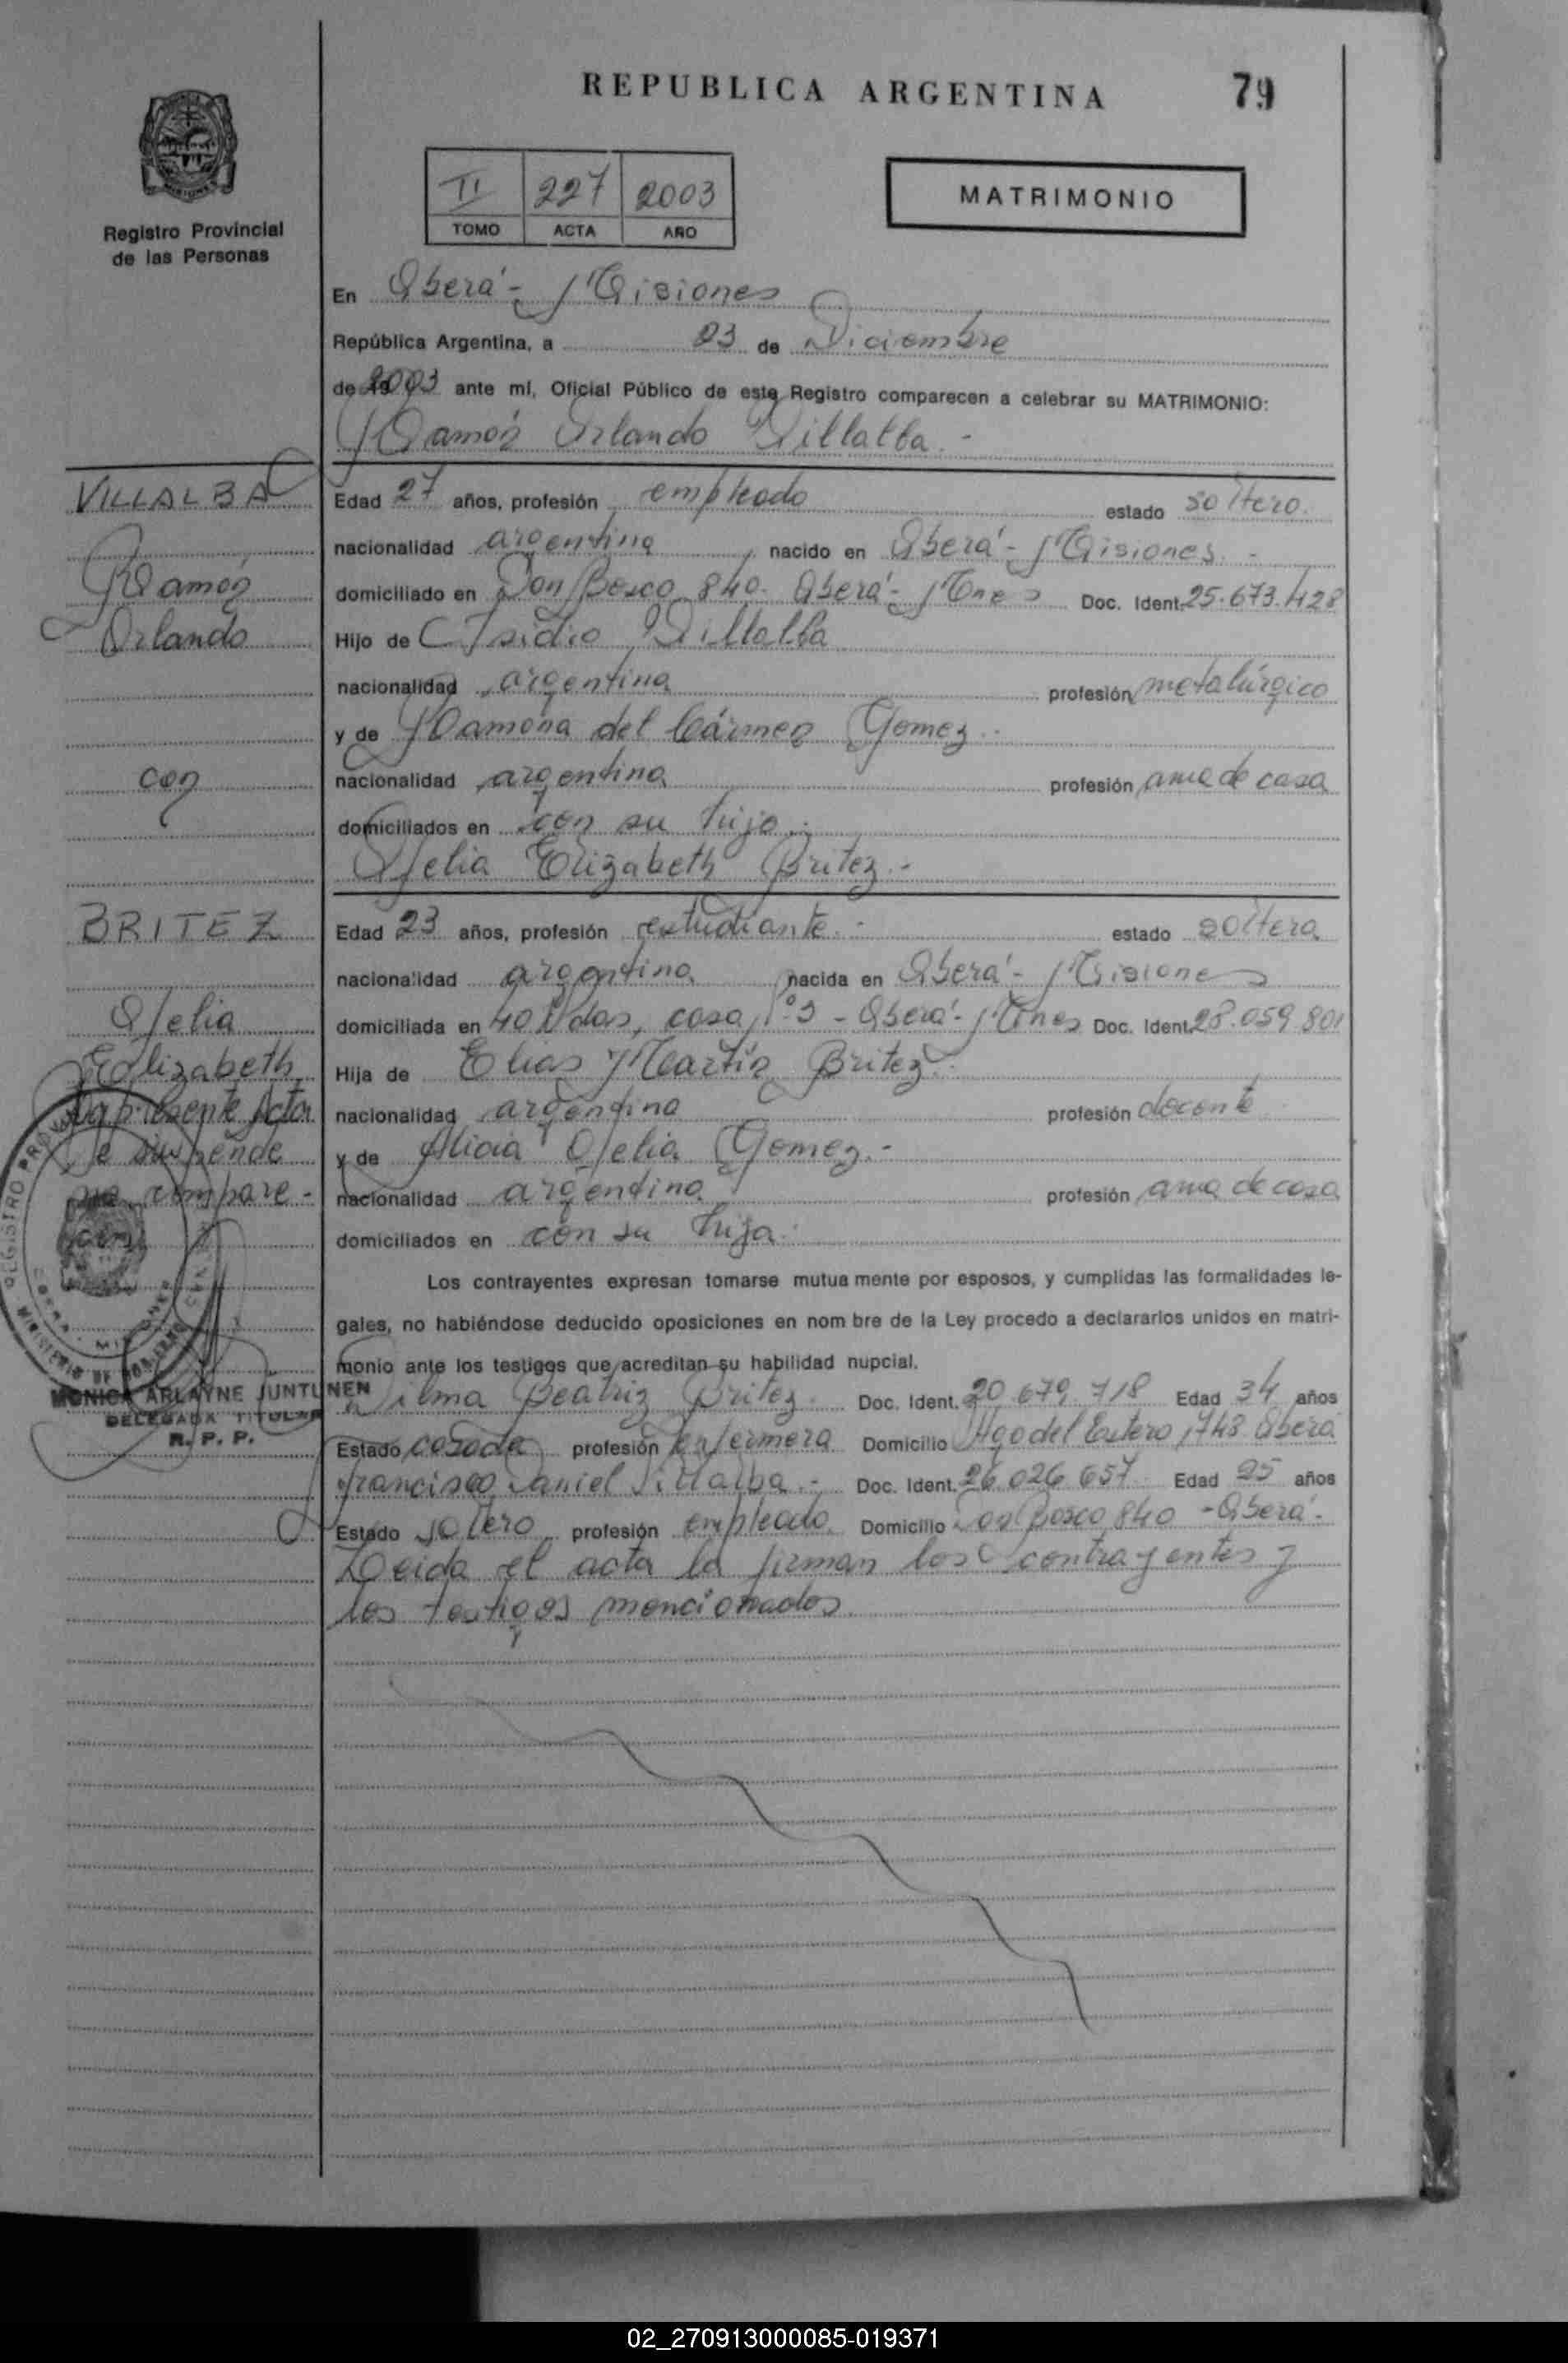 REPUBLICA ARGENTINA
79
II 227 2003
TOMO ACTA AÑO
MATRIMONIO
Registro Provincial
de las Personas
En Oberá - Misiones
República Argentina, a 03 de Diciembre
de 2003 ante mí, Oficial Público de este Registro comparecen a celebrar su MATRIMONIO:
Ramón Orlando Villalba.-
VILLALBA
Ramón
Orlando
con
Edad 27 años, profesión empleado estado soltero.
nacionalidad argentina nacido en Oberá - Misiones.-
domiciliado en Don Bosco 840. Oberá - Mnes Doc. Ident. 25.673.428
Hijo de Isidro Villalba
nacionalidad argentina profesión metalúrgico
y de Ramona del Cármen Gomez.-
nacionalidad argentina profesión ama de casa
domiciliados en con su hijo.-
Ofelia Elizabeth Britez.-
BRITEZ
Ofelia
Elizabeth
La presente Acta
se suspende
compare-
Edad 23 años, profesión estudiante.- estado soltera
nacionalidad argentina nacida en Oberá - Misiones
domiciliada en 40 Vdas, casa Nº 3 - Oberá - Mnes Doc. Ident. 28.059.801
Hija de Elias Martín Britez.-
nacionalidad argentina profesión docente
y de Alicia Ofelia Gomez.-
nacionalidad argentina profesión ama de casa
domiciliados en con su hija.
Los contrayentes expresan tomarse mutua mente por esposos, y cumplidas las formalidades le-
gales, no habiéndose deducido oposiciones en nom bre de la Ley procedo a declararlos unidos en matri-
monio ante los testigos que acreditan su habilidad nupcial.
MONICA ARLAYNE JUNTUNEN
DELEGADA TITULAR
R. P. P.
Vilma Beatriz Britez Doc. Ident. 20.679.718 Edad 34 años
Estado casada profesión enfermera Domicilio Stgo del Estero 1748 Oberá
Francisco Daniel Villalba.- Doc. Ident. 26.026.657 Edad 25 años
Estado soltero profesión empleado Domicilio Don Bosco 840 - Oberá.
Leida el acta la firman los contrayentes y
los testigos mencionados.
02_270913000085-019371